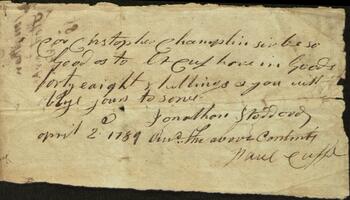 Christopher Champlin sir be so
good as to let Cuf have in Goods
forty eaight shillings & you will
oblige yours to serve
Jonathan Stoddord
april 2d 1789 the above Contents
Paul Cuffe